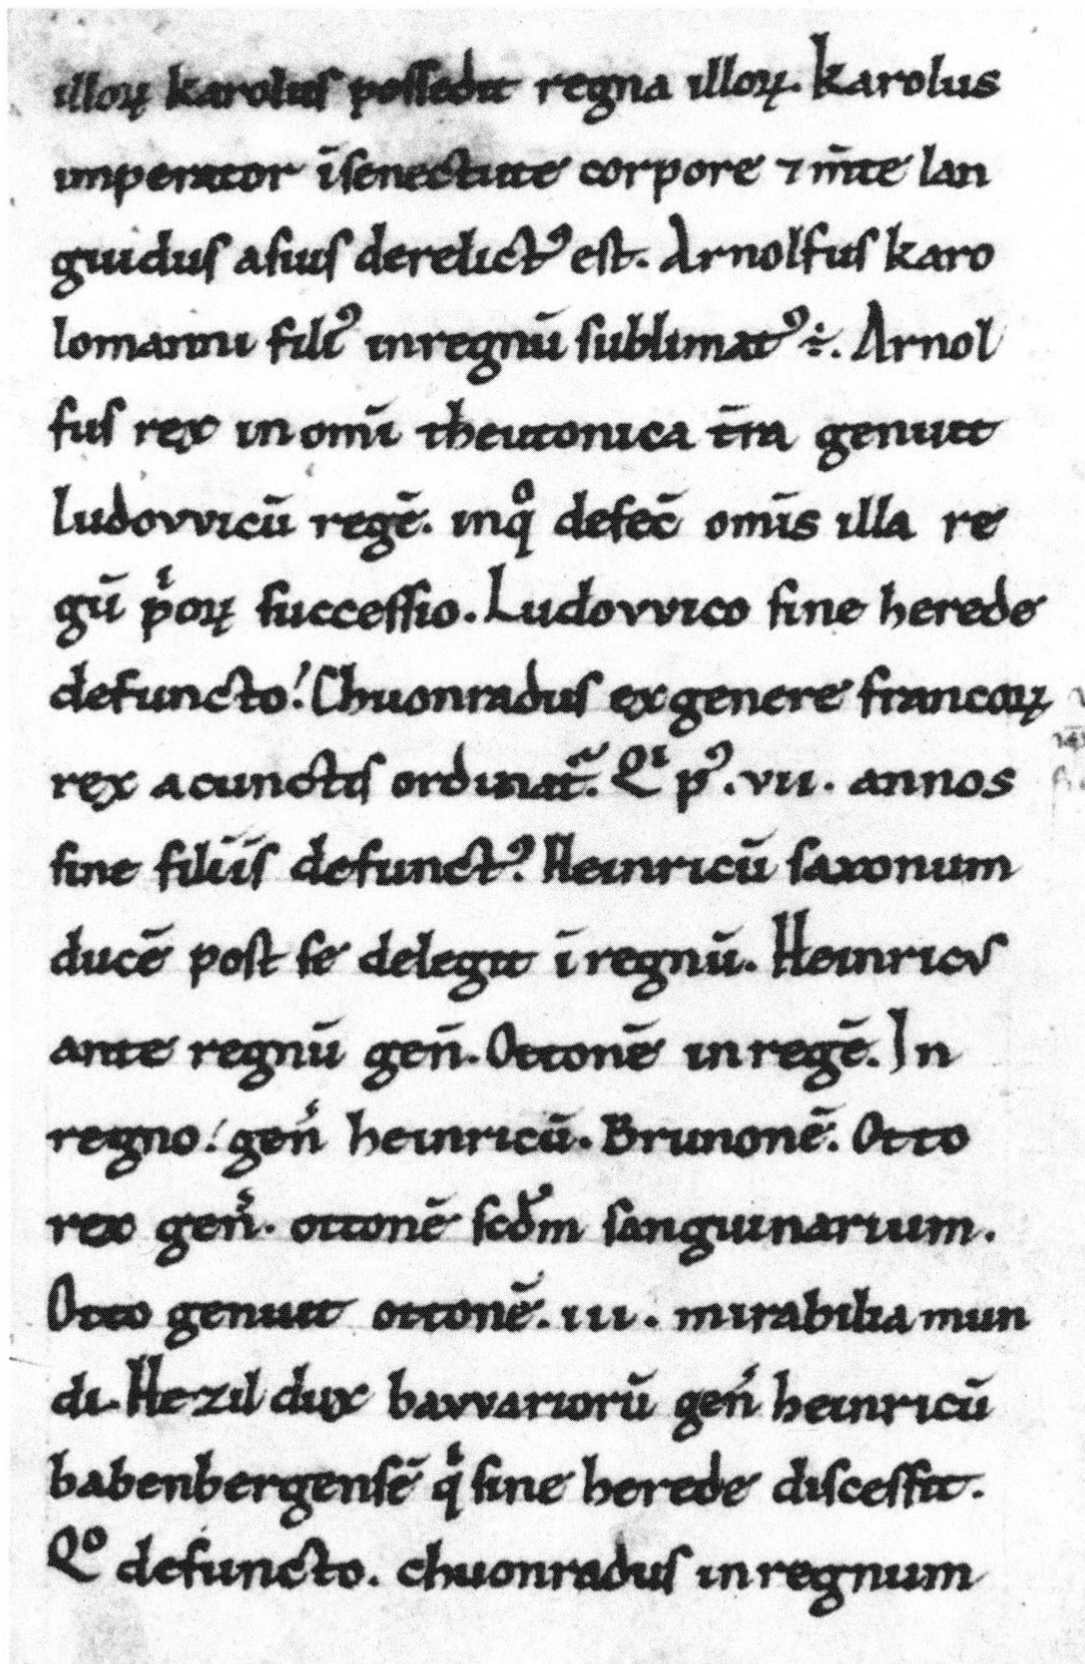 illoꝝ karoluſ poſſedit regna illoꝝ. Karolus
imperator īſenectute corpore ⁊ m̄te lan
guidus aſuiſ derelictꝰ eſt. Arnolfuſ karo
lomanni filiꝰ inregnū ſublimatꝰ ÷. Arnol
fuſ rex in omī theutonica t̄ra genuit
ludovvicū regē. inqͦ defec̄ omīs illa re
gū pͥoꝝ ſucceſſio. Ludovvico ſine herede
defuncto! Chuonraduſ ex genere francoꝝ
rex acunctiſ ordinat᷑. Qͥ pꝰ .vii. annos
ſine filiiſ defunctꝰ. Heinricū ſaxonum
ducē poſt ſe delegit ī regnū. Heinricꝰ
ante regnū gen̄. Ottonē in regē. In
regno! gen̄ heinricū. Brunonē. Otto
rex gen̄. ottonē ſcd̄m ſanguinarium.
Otto genuit ottonē. iii. mirabilia mun
di. Hezil dux bavvariorū gen̄ heinricū
babenbergenſē qͥ ſine herede diſceſſit.
Qͦ defuncto. chuonraduſ in regnum